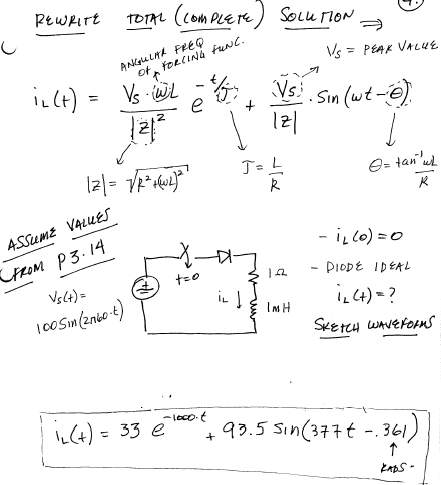 4.
REWRITE TOTAL (COMPLETE) SOLUTION ⇒
ANGULAR FREQ
OF FORCING FUNC.
Vs = PEAK VALUE
iL(t) = Vs·ωL / |Z|² e^(-t/J) + Vs / |Z| · Sin(ωt-θ)
|Z| = √(R²+(ωL)²)
J = L/R
θ = tan⁻¹ ωL/R
ASSUME VALUES
FROM P3.14
Vs(t)=
100 Sin(2π60·t)
t=0
iL ↓
1Ω
1mH
- iL(0)=0
- DIODE IDEAL
iL(t)=?
SKETCH WAVEFORMS
iL(t) = 33 e^(-1000·t) + 93.5 Sin(377t - .361)
RADS-